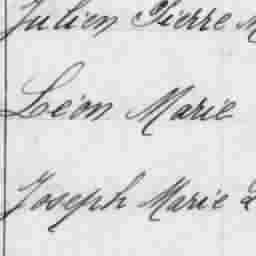 Julien Pierre M
Léon Marie
Joseph Marie L